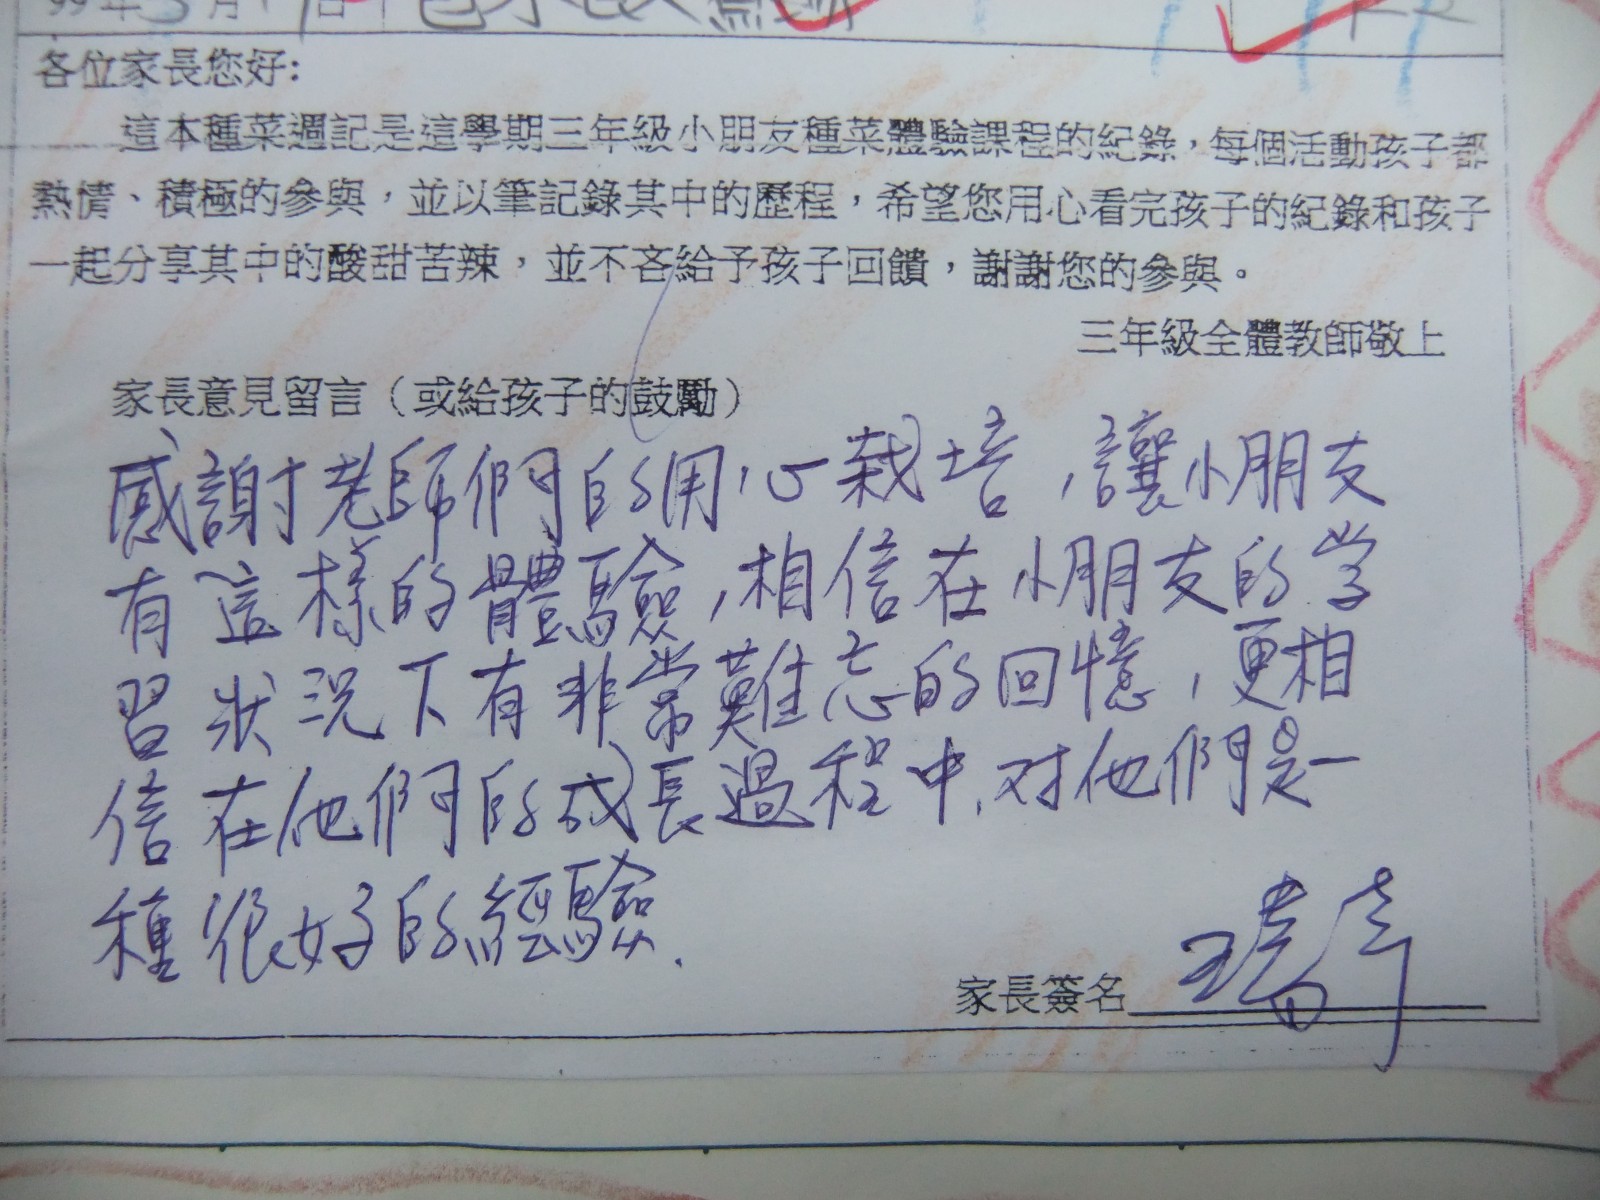 99年5月 日
各位家長您好:
這本種菜週記是這學期三年級小朋友種菜體驗課程的紀錄，每個活動孩子都
熱情、積極的參與，並以筆記錄其中的歷程，希望您用心看完孩子的紀錄和孩子
一起分享其中的酸甜苦辣，並不吝給予孩子回饋，謝謝您的參與。
三年級全體教師敬上
家長意見留言（或給孩子的鼓勵）
感謝老師們的用心栽培，讓小朋友
有這樣的體驗，相信在小朋友的学
習狀況下有非常難忘的回憶，更相
信在他們的成長過程中，对他們是一
種很好的經驗.
家長簽名